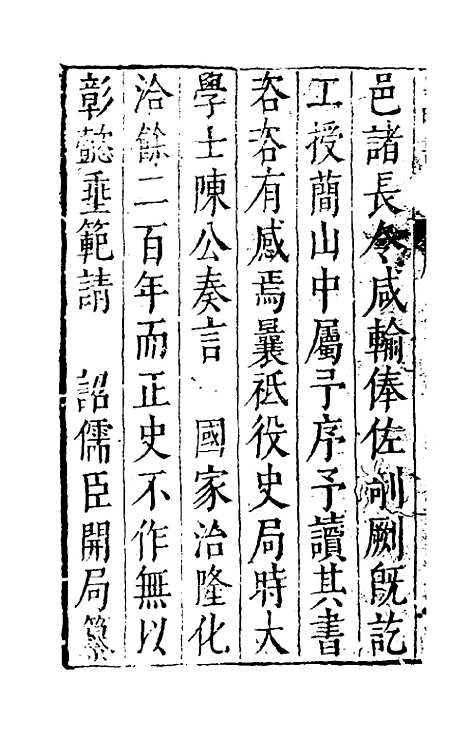 邑諸長令咸輸俸佐剞劂旣訖
工授蕳山中屬予序予讀其書
咨咨有感焉曩祗役史局時大
學士陳公奏言　國家治隆化
洽餘二百年而正史不作無以
彰懿垂範請　詔儒臣開局纂